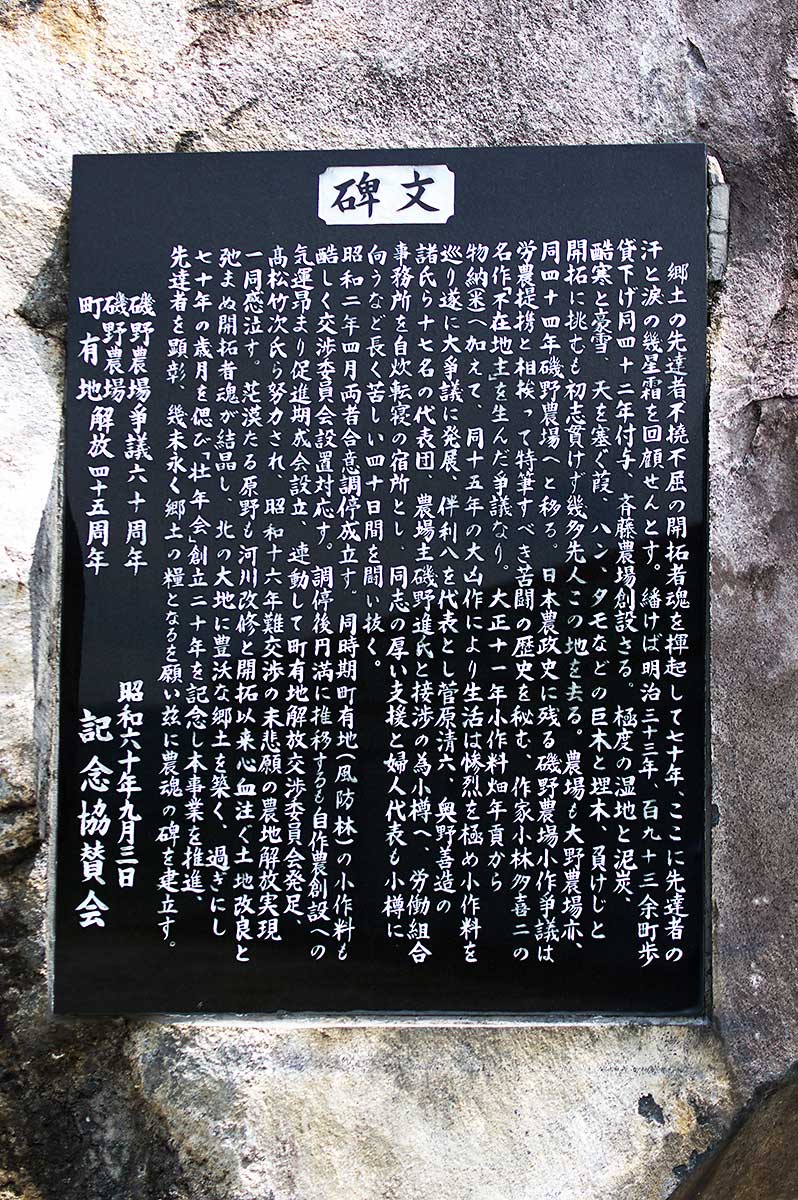 碑文
郷土の先達者不撓不屈の開拓者魂を揮起して七十年、ここに先達者の
汗と涙の幾星霜を回顧せんとす。繙けば明治三十三年、百九十三余町歩
貸下げ同四十二年付与、斉藤農場創設さる。極度の湿地と泥炭、
酷寒と豪雪、天を塞ぐ葭、ハン、タモなどの巨木と埋木、負けじと
開拓に挑むも初志貫けず幾多先人この地を去る。農場も大野農場亦、
同四十四年磯野農場へと移る。日本農政史に残る磯野農場小作争議は
労農提携と相挨って特筆すべき苦闘の歴史を秘む、作家小林多喜二の
名作「不在地主」を生んだ争議なり。大正十一年小作料畑年貢から
物納(米)へ加えて、同十五年の大凶作により生活は惨烈を極め小作料を
巡り遂に大争議に発展、伴利八を代表とし菅原清六、奥野善造の
諸氏ら十七名の代表団、農場主磯野進氏と接渉の為小樽へ、労働組合
事務所を自炊転寝の宿所とし、同志の厚い支援と婦人代表も小樽に
向うなど長く苦しい四十日間を闘い抜く。
昭和二年四月両者合意調停成立す。同時期町有地(風防林)の小作料も
酷しく交渉委員会設置対応す。調停後円満に推移するも自作農創設への
気運昂まり促進期成会設立、連動して町有地解放交渉委員会発足、
髙松竹次氏ら努力され、昭和十六年難交渉の末悲願の農地解放実現
一同感泣す。茫漠たる原野も河川改修と開拓以来心血注ぐ土地改良と
弛まぬ開拓者魂が結晶し、北の大地に豊沃な郷土を築く、過ぎにし
七十年の歳月を偲び「壮年会」創立二十年を記念し本事業を推進、
先達者を顕彰、幾末永く郷土の糧となるを願い玆に農魂の碑を建立す。
磯野農場争議六十周年
磯野農場
町有地解放四十五周年
昭和六十年九月三日
記念協賛会